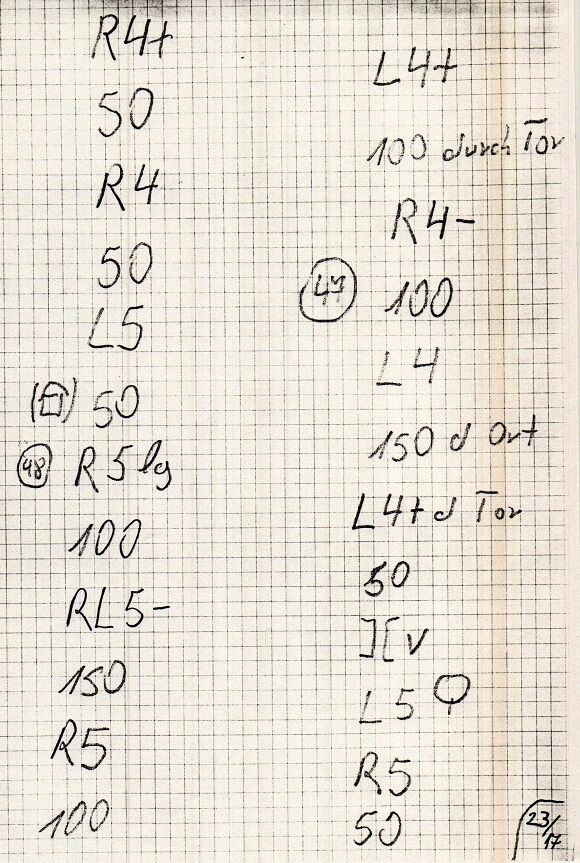 R4+
50
R4
50
L5
50
48 R5 lg
100
RL5-
150
R5
100
L4+
100 durch Tor
R4-
47 100
L4
150 d Ort
L4+ d Tor
50
][ v
L5
R5
50
23/17